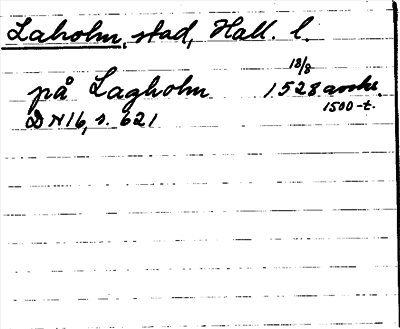 Laholm, stad, Hall. l.
18/8
på Lagholm 1528 avskr.
1500-t.
DN 16, s. 621